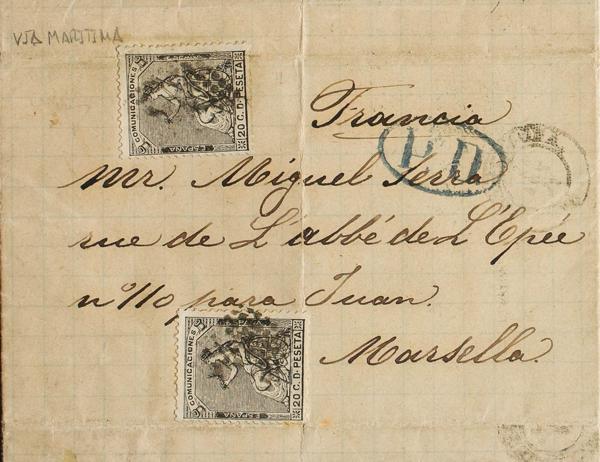 VIA MARITIMA
COMUNICACIONES
ESPAÑA
20 C. D. PESETA
Francia
P.D.
Mr. Miguel Serra
rue de L'abbé de L'Epée
nº 110 para Juan.
Marsella.
COMUNICACIONES
ESPAÑA
20 C. D. PESETA